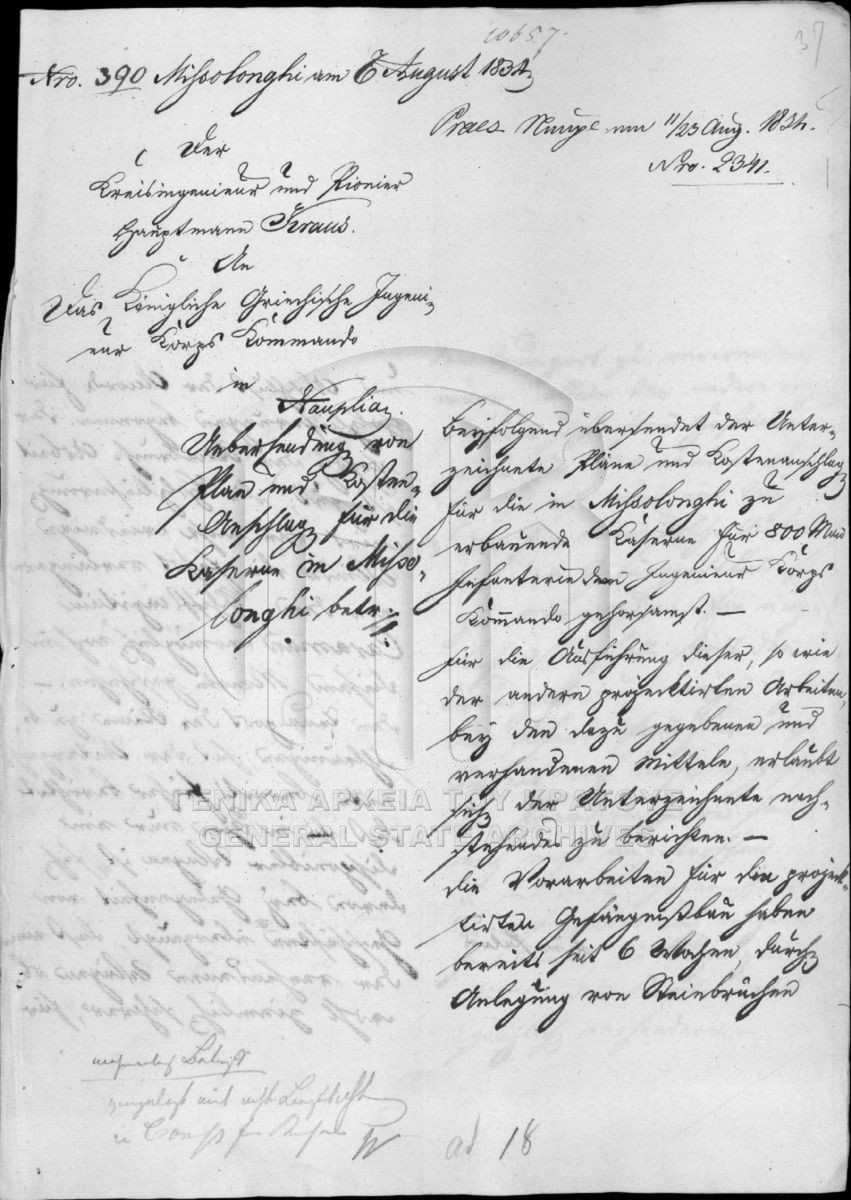 10657.
37
Nro. 390 Missolonghi am 6 August 1834
Praes Nauplie am 11/23 Aug. 1834.
Nro. 2341.
Der
Kreisingenieur und Pionier
Hauptmann Kraus.
An
Das Königliche Griechische Ingeni-
eur Korps Kommando
in
Nauplia.
Uebersendung von
Plan und Kosten-
Anschlag für die
Kaserne in Misso-
longhi betr.
Beyfolgend übersendet der Unter-
zeichnete Pläne und Kostenanschlag
für die in Missolonghi zu
erbauende Kaserne für 800 Mann
Infanterie dem Ingenieur Korps
Kommando gehorsamst. —
Für die Ausführung dieser, so wie
der andern projecktirten Arbeiten,
bey den dazu gegebenen und
verhandenen Mitteln, erlaubt
sich der Unterzeichnete nach-
stehendes zu berichten. —
Die Vorarbeiten für die projeck-
tirten Gefängnißbau haben
bereits seit 6 Wochen durch
Anlegung von Steinbrüchen
ΓΕΝΙΚΑ ΑΡΧΕΙΑ ΤΟΥ ΚΡΑΤΟΥΣ
GENERAL STATE ARCHIVES
ad 18